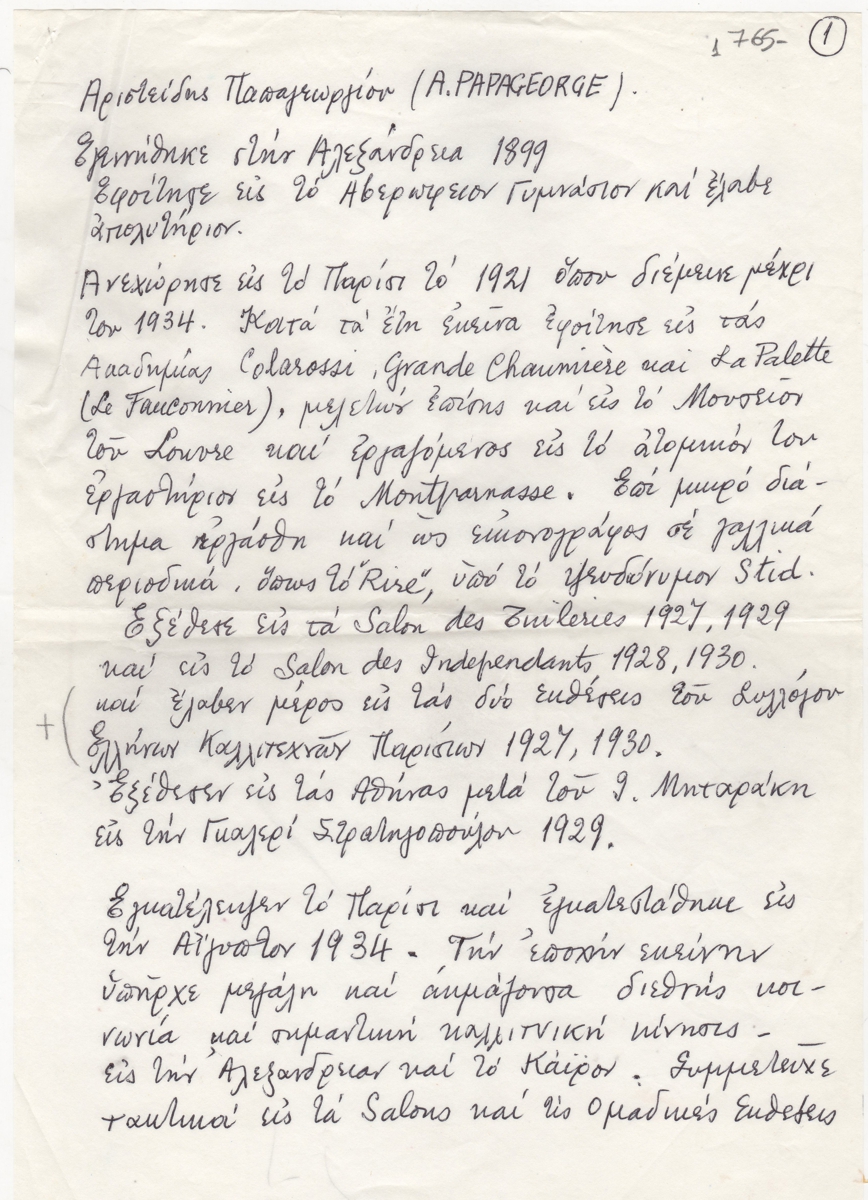 1 765- 1
Αριστείδης Παπαγεωργίου (A. PAPAGEORGE).
Εγεννήθηκε στήν Αλεξάνδρεια 1899
Εφοίτησε εις τό Αβερώφειον Γυμνάσιον καί έλαβε
απολυτήριον.
Ανεχώρησε εις τό Παρίσι τό 1921 όπου διέμεινε μέχρι
του 1934. Κατά τά έτη εκείνα εφοίτησε εις τάς
Ακαδημίας Colarossi, Grande Chaumière και La Palette
(Le Fauconnier), μελετών επίσης καί εις τό Μουσείον
τού Louvre καί εργαζόμενος εις τό ατομικόν του
εργαστήριον εις τό Montparnasse. Επί μικρό διά-
στημα εργάσθη καί ως εικονογράφος σέ γαλλικά
περιοδικά, όπως τό "Rire", υπό τό ψευδώνυμον Stid.
Εξέθεσε εις τά Salon des Tuileries 1927, 1929
καί εις τό Salon des Independants 1928, 1930.
καί έλαβεν μέρος εις τάς δύο εκθέσεις τού Συλλόγου
+ ( Ελλήνων Καλλιτεχνών Παρισίων 1927, 1930.
Εξέθεσεν εις τάς Αθήνας μετά τού Γ. Μηταράκη
εις τήν Γκαλερί Στρατηγοπούλου 1929.
Εγκατέλειψεν τό Παρίσι καί εγκατεστάθηκε εις
τήν Αίγυπτον 1934. Τήν εποχήν εκείνην
υπήρχε μεγάλη καί ακμάζουσα διεθνής κοι-
νωνία καί σημαντική καλλιτνική κίνησις -
εις τήν Αλεξάνδρειαν καί τό Κάϊρον. Συμμετείχε
τακτικά εις τά Salons καί τις Ομαδικές Εκθεσεις